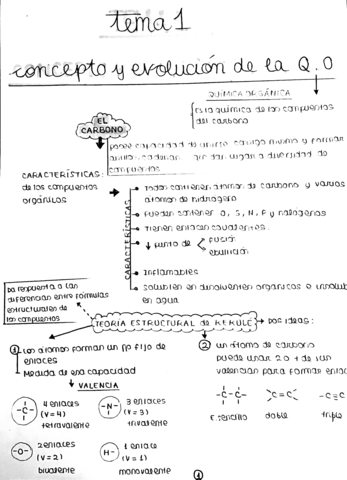 tema 1
concepto y evolución de la Q.O
QUÍMICA ORGÁNICA
Es la química de los compuestos
del carbono
EL
CARBONO
posee capacidad de unirse consigo mismo y formar
anillos cadenas que dan lugar a diversidad de
compuestos
CARACTERÍSTICAS:
de los compuestos
orgánicos
CARACTERÍSTICAS
Todos contienen átomos de carbono y varios
átomos de hidrógeno
Pueden contener O, S, N, P y halógenos
Tienen enlaces covalentes
↓ punto de
fusión
ebullición
Inflamables
solubles en disolventes orgánicos e insolub
en agua
Da respuesta a las
diferencias entre fórmulas
estructurales de
los compuestos
TEORÍA ESTRUCTURAL de KEKULÉ → Dos ideas:
1 Los átomos forman un nº fijo de
enlaces
Medida de esa capacidad
VALENCIA
-C- 4 enlaces
(V=4)
tetravalente
-N- 3 enlaces
(V=3)
trivalente
-O- 2 enlaces
(V=2)
bivalente
H- 1 enlace
(V=1)
monovalente
2 un átomo de carbono
puede usar 2 o + de sus
valencias para formar enlac
-C-C- >C=C< -C≡C
sencillo doble triple
1